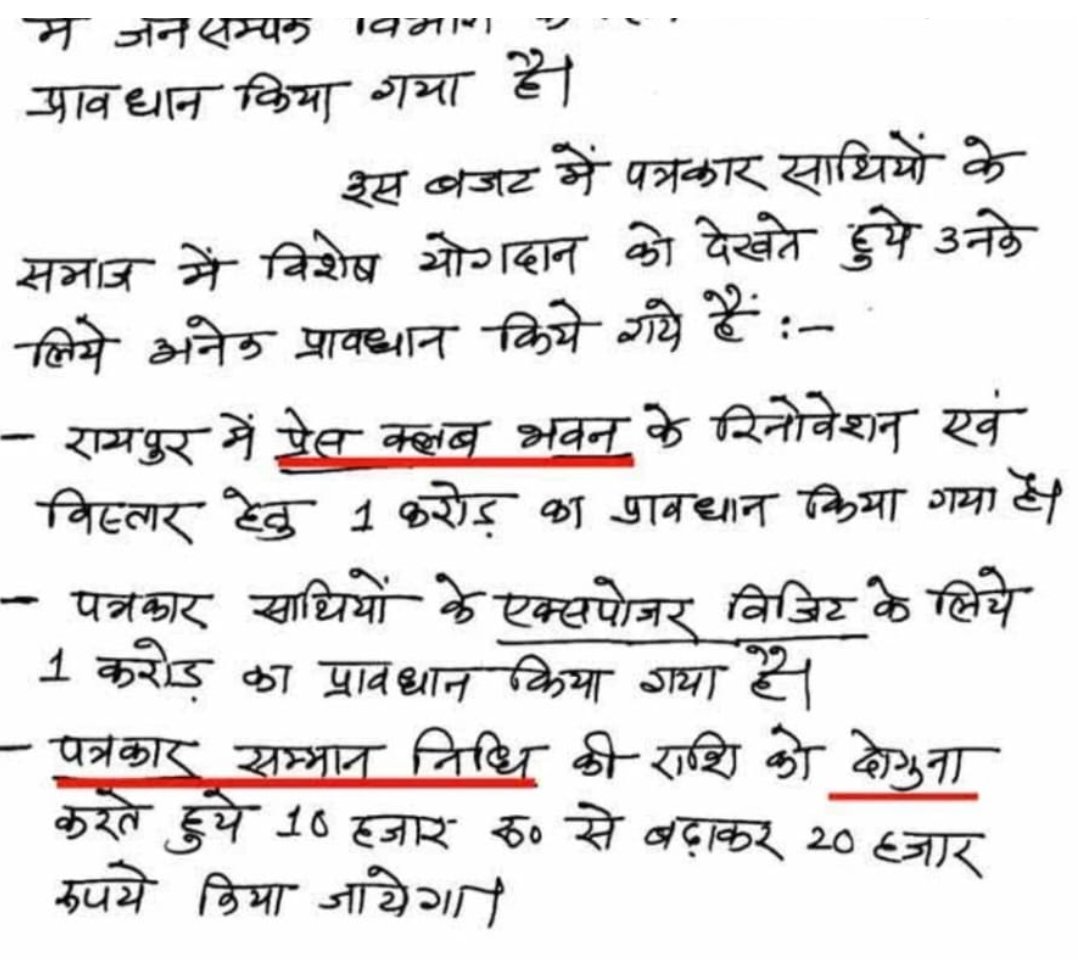 में जनसम्पर्क विभाग के
प्रावधान किया गया है।
इस बजट में पत्रकार साथियों के
समाज में विशेष योगदान को देखते हुये उनके
लिये अनेक प्रावधान किये गये हैं :-
- रायपुर में प्रेस क्लब भवन के रिनोवेशन एवं
विस्तार हेतु 1 करोड़ का प्रावधान किया गया है।
- पत्रकार साथियों के एक्सपोजर विजिट के लिये
1 करोड़ का प्रावधान किया गया है।
- पत्रकार सम्मान निधि की राशि को दोगुना
करते हुये 10 हजार रु० से बढ़ाकर 20 हजार
रुपये किया जायेगा।